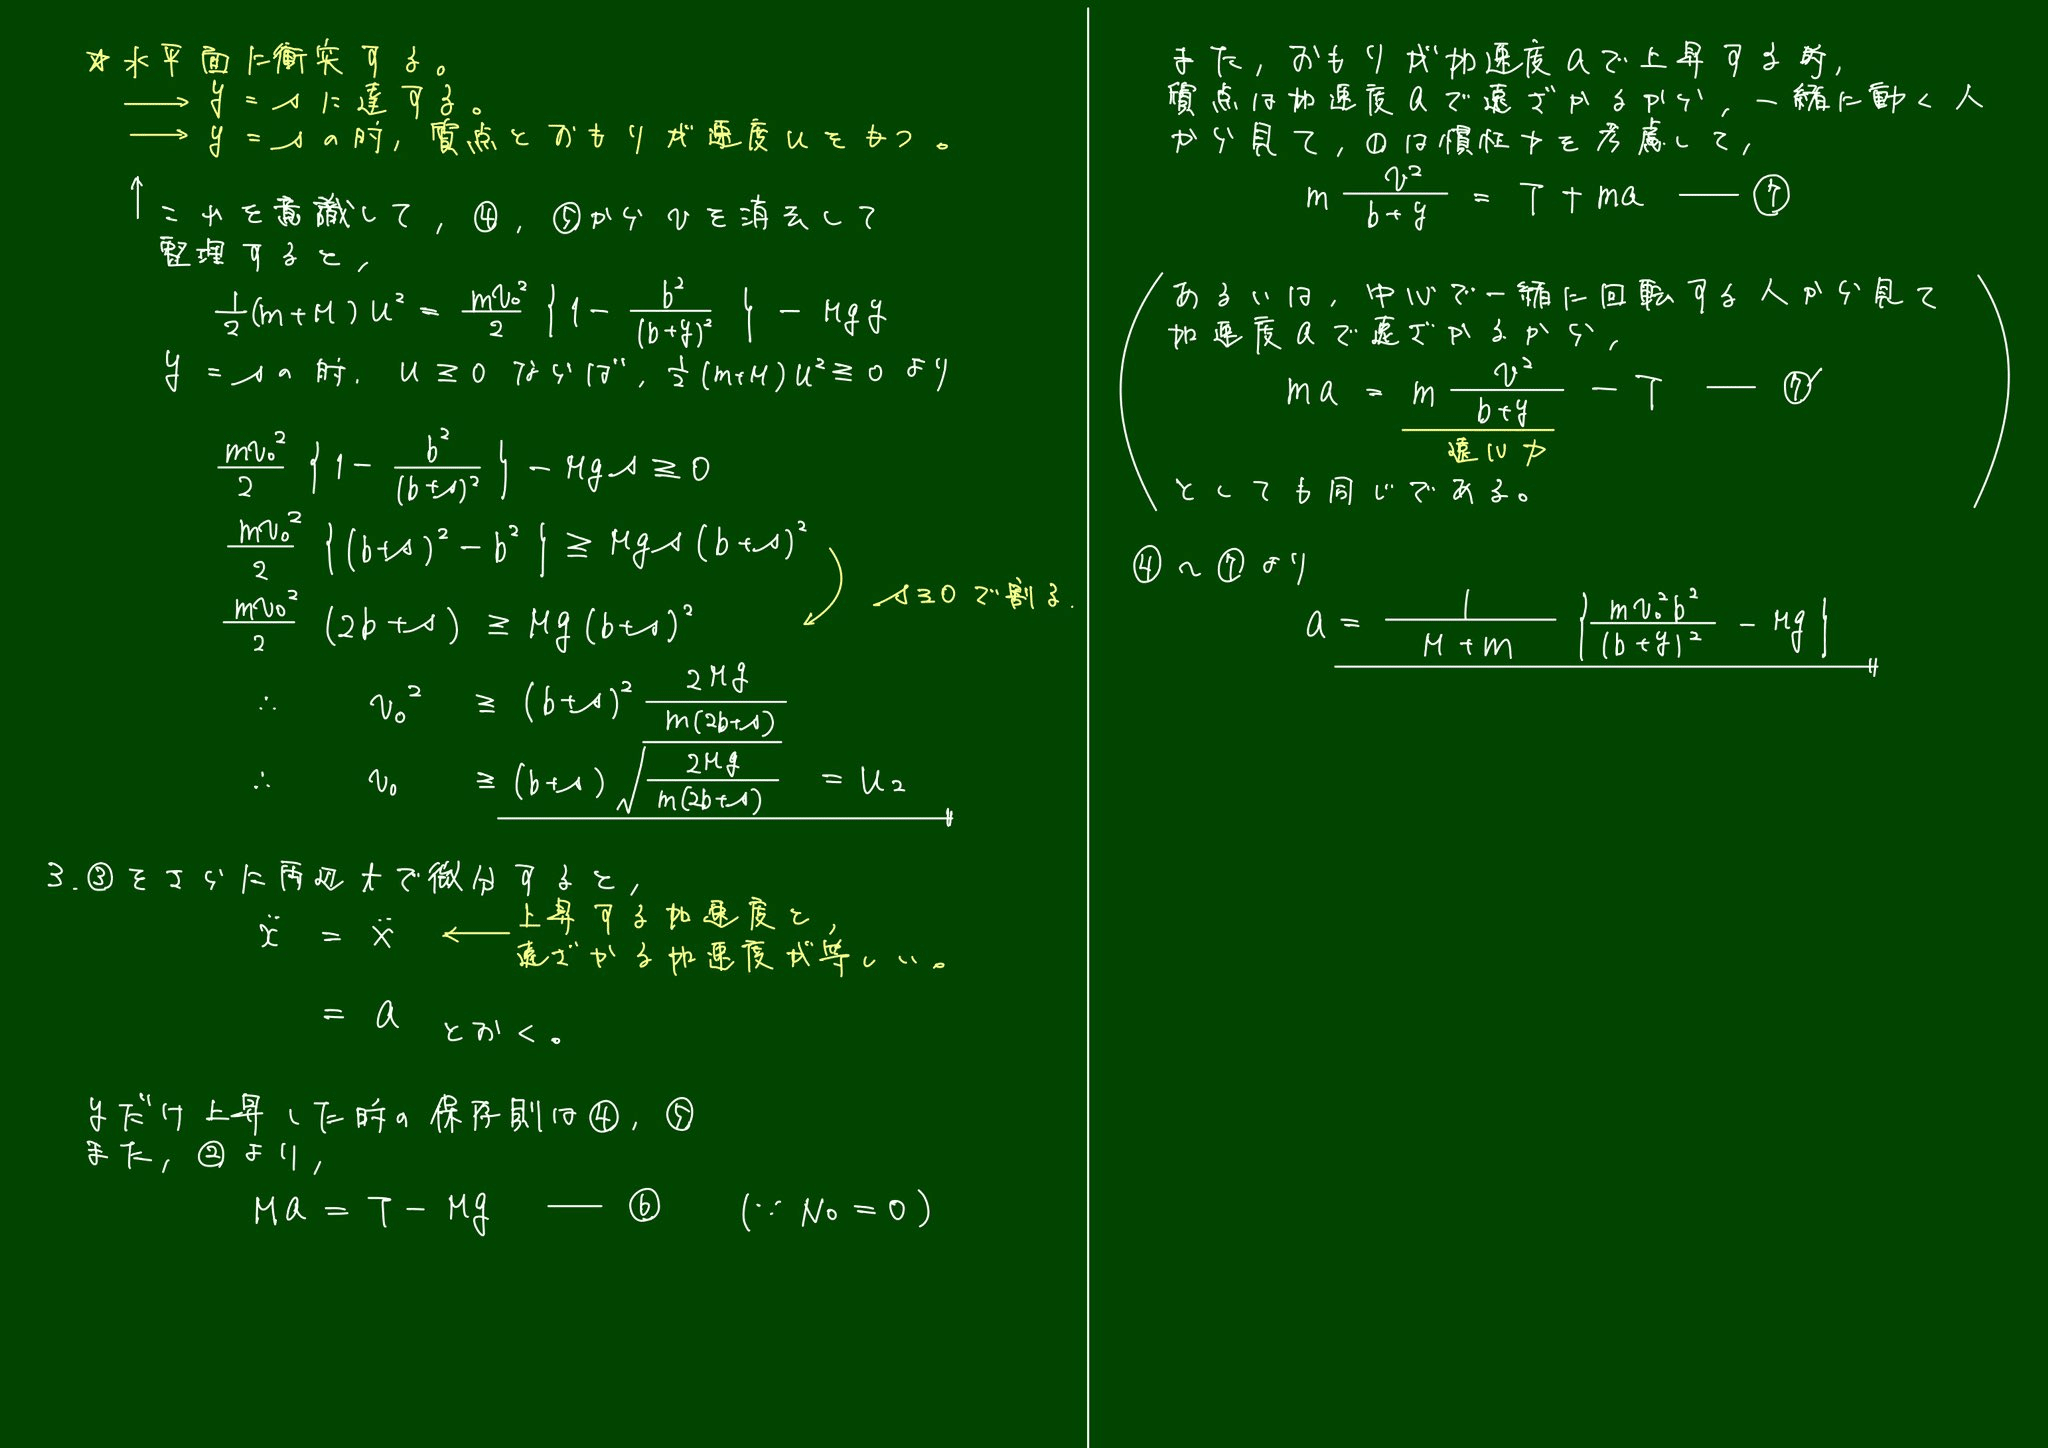 ☆水平面に衝突する。
→ y = s に達する。
→ y = s の時, 質点とおもりが速度 u をもつ。
↑ これを意識して, ④, ⑤から v を消去して
整理すると,
1/2 (m+M) u² = mv₀²/2 { 1 - b²/(b+y)² } - Mgy
y = s の時, u ≧ 0 ならば, 1/2 (m+M) u² ≧ 0 より
mv₀²/2 { 1 - b²/(b+s)² } - Mgs ≧ 0
mv₀²/2 { (b+s)² - b² } ≧ Mgs (b+s)²
s≧0 で割る.
mv₀²/2 (2b+s) ≧ Mg (b+s)²
∴ v₀² ≧ (b+s)² 2Mg/m(2b+s)
∴ v₀ ≧ (b+s) √(2Mg/m(2b+s)) = u₂
3. ③をさらに両辺 t で微分すると,
ẍ = Ẍ ← 上昇する加速度と,
遠ざかる加速度が等しい。
= a とおく。
yだけ上昇した時の保存則は④, ⑤
また, ②より,
Ma = T - Mg — ⑥ (∵ N₀ = 0)
また, おもりが加速度 a で上昇する時,
質点は加速度 a で遠ざかるから, 一緒に動く人
から見て, ①は慣性力を考慮して,
m v²/(b+y) = T + ma — ⑦
あるいは, 中心で一緒に回転する人から見て
加速度 a で遠ざかるから,
ma = m v²/(b+y) - T — ⑦′
遠心力
としても同じである。
④〜⑦より
a = 1/(M+m) { mv₀²b²/(b+y)² - Mg }